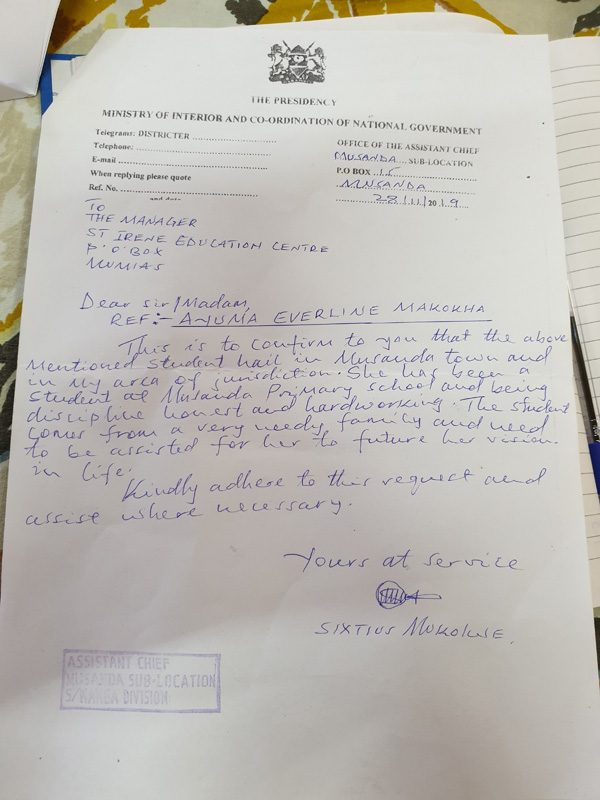 THE PRESIDENCY
MINISTRY OF INTERIOR AND CO-ORDINATION OF NATIONAL GOVERNMENT
Telegrams: DISTRICTER ......................
Telephone: ......................
E-mail ......................
When replying please quote
Ref. No. ......................
and date
OFFICE OF THE ASSISTANT CHIEF
MUSANDA SUB-LOCATION
P.O BOX 15
MUSANDA
28/11/2019
To
THE MANAGER
ST IRENE EDUCATION CENTRE
P.O BOX
MUMIAS
Dear sir/Madam,
REF:- AJUMA EVERLINE MAKOKHA
This is to confirm to you that the above
mentioned student hail in Musanda town and
in my area of jurisdiction. She has been a
student at Musanda Primary school and being
discipline honest and hardworking. The student
comes from a very needy family and need
to be assisted for her to future her vision
in life.
Kindly adhere to this request and
assist where necessary.
Yours at service
SIXTIUS MUKOLWE.
ASSISTANT CHIEF
MUSANDA SUB-LOCATION
S/WANGA DIVISION